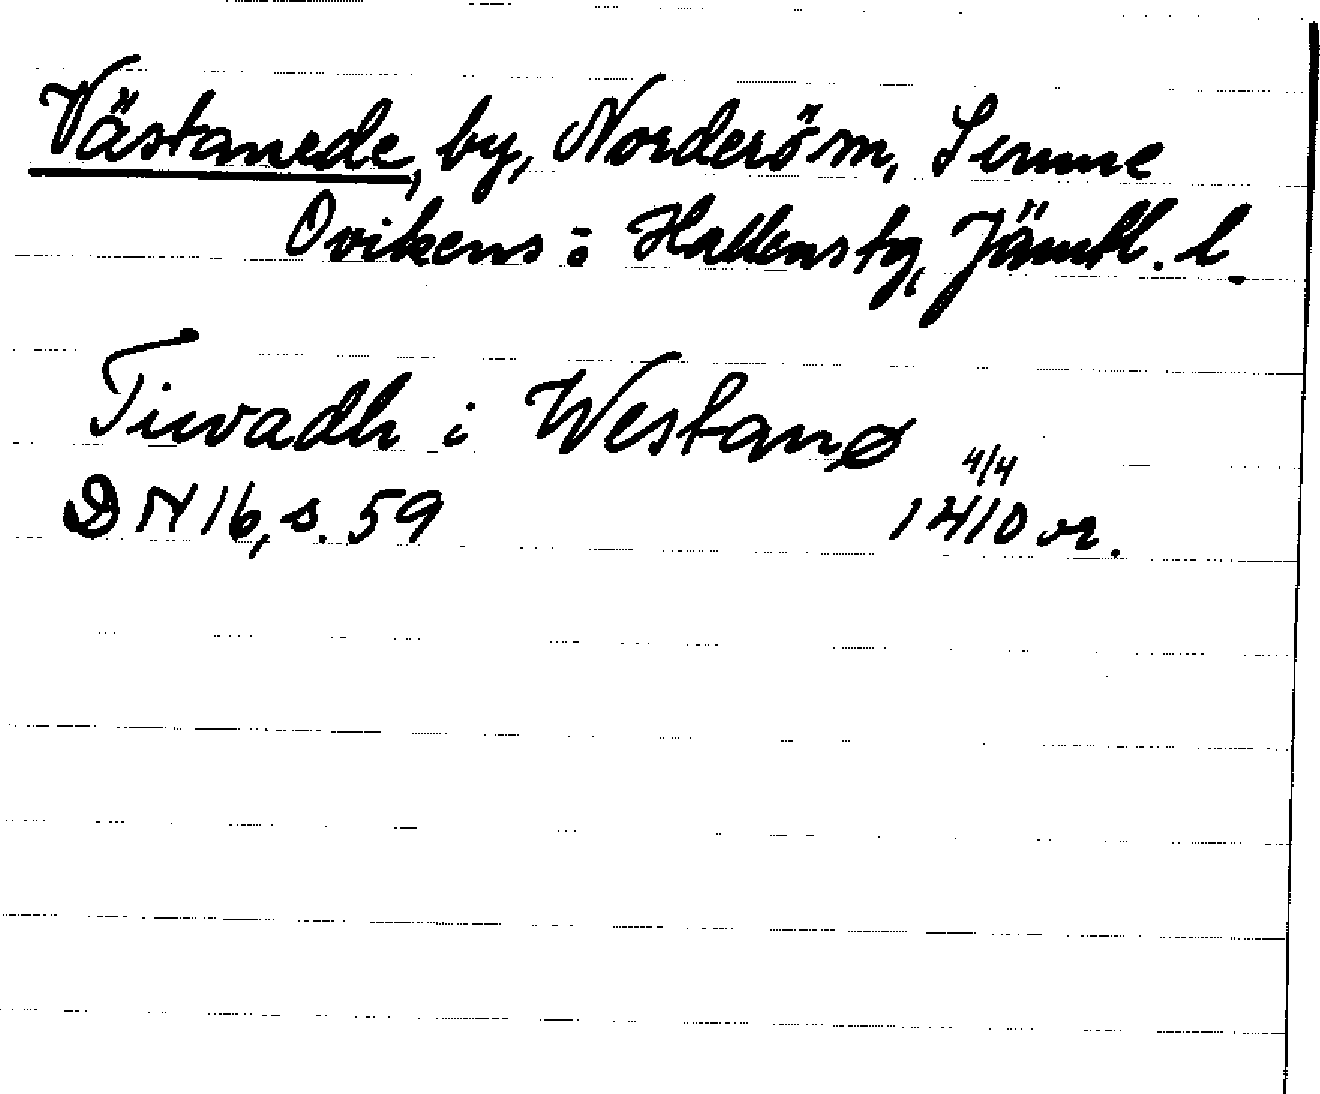 Västanede, by, Norderö sn, Sunne
Ovikens o Hallens tg, Jämtl. l.
Tiuvadh i Westanø
DN 16, s. 59 4/4 1410 or.